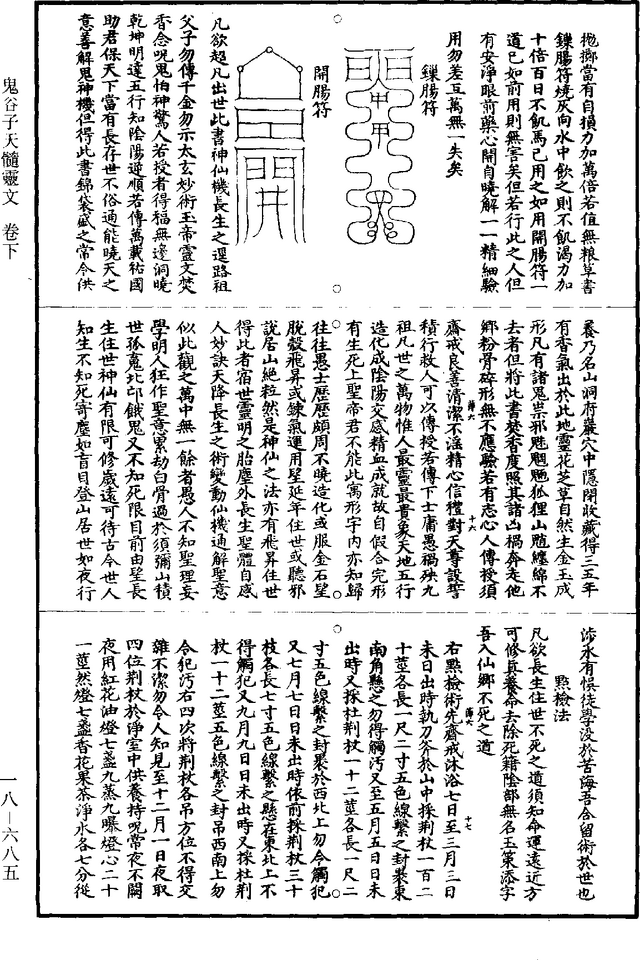 鬼谷子天髓靈文 卷下
一八—六八五
抛擲當有自損力加萬倍若值無粮草書
鏁腸符燒灰向水中飲之則不飢渴力加
十倍百日不飢馬已用之如用開腸符一
道已如前用則無害矣但若行此之人但
有安淨眼前藥心開自曉解一一精細驗
用勿差互萬無一失矣
鏁腸符
開腸符
凡欲超凡出世此書神仙機長生之遥路祖
父子勿傳千金勿示太玄妙術玉帝靈文焚
香念呪鬼怕神驚人若授者得福無邊洞曉
乾坤明達五行知陰陽逆順若傳萬載祐國
助君保天下當有長存世不俗通能曉天之
意善解鬼神機但得此書錦袋盛之常令供
養乃名山洞府巖穴中隱閉收藏得三五年
有香氣出於此地靈花芝草自然生金玉成
形凡有諸鬼祟邪魅魍魎狐狸山魈纏綿不
去者但將此書焚香度照其諸凶禍奔走他
鄉粉骨碎形無不應驗若有志心人傳授須
齋戒良善清潔不淫精心信禮對天尊設誓
積行救人可以傳授若傳下士庸愚禍殃九
祖凡世之萬物惟人最靈最貴象天地五行
造化成陰陽交感精血成就故自假合完形
有生死上聖帝君不能此寓形宇内亦知歸
往往愚士歷歷頗周不曉造化或服金石星
脫殼飛昇或鍊氣運用望延年住世或聽邪
說居山絕粒然是神仙之法亦有飛昇住世
得此者宿世靈明之胎塵外長生聖體自感
人妙訣天降長生之術變動仙機通解聖意
似此觀之萬中無一餘者愚人不知聖理妄
學明人狂作聖意累劫白骨過於須彌山積
世孤䰟北邙餓鬼又不知死限目前由望長
生住世神仙有限可修歲遠可待古今世人
知生不知死寄塵如盲目登山居世如夜行
涉水有悞徒學沒於苦海吾今留術於世也
點檢法
凡欲長生住世不死之道須知命運遠近方
可修真養命去除死籍陰部無名玉策添字
吾入仙鄉不死之道
右點檢術先齋戒沐浴七日至三月三日
未日出時執刀斧於山中採荆杖一百二
十莖各長一尺二寸五色線繫之封裝東
南角懸之勿得觸污又至五月五日日未
出時又採杜荆杖一十二莖各長一尺二
寸五色線繫之封裹於西北上勿令觸犯
又七月七日日未出時依前採荆杖三十
枝各長七寸五色線繫之懸在東北上不
得觸犯又九月九日日未出時又採杜荆
杖一十二莖五色線繫之封吊西南上勿
令犯污右四次將荆杖各吊方位不得交
雜不潔勿令人知見至十二月一日夜取
四位荆杖於淨室中供養持呪常夜不闕
夜用紅花油燈七盞九蒸九曝燈心二十
一莖然燈七盞香花果茶淨水各七分從